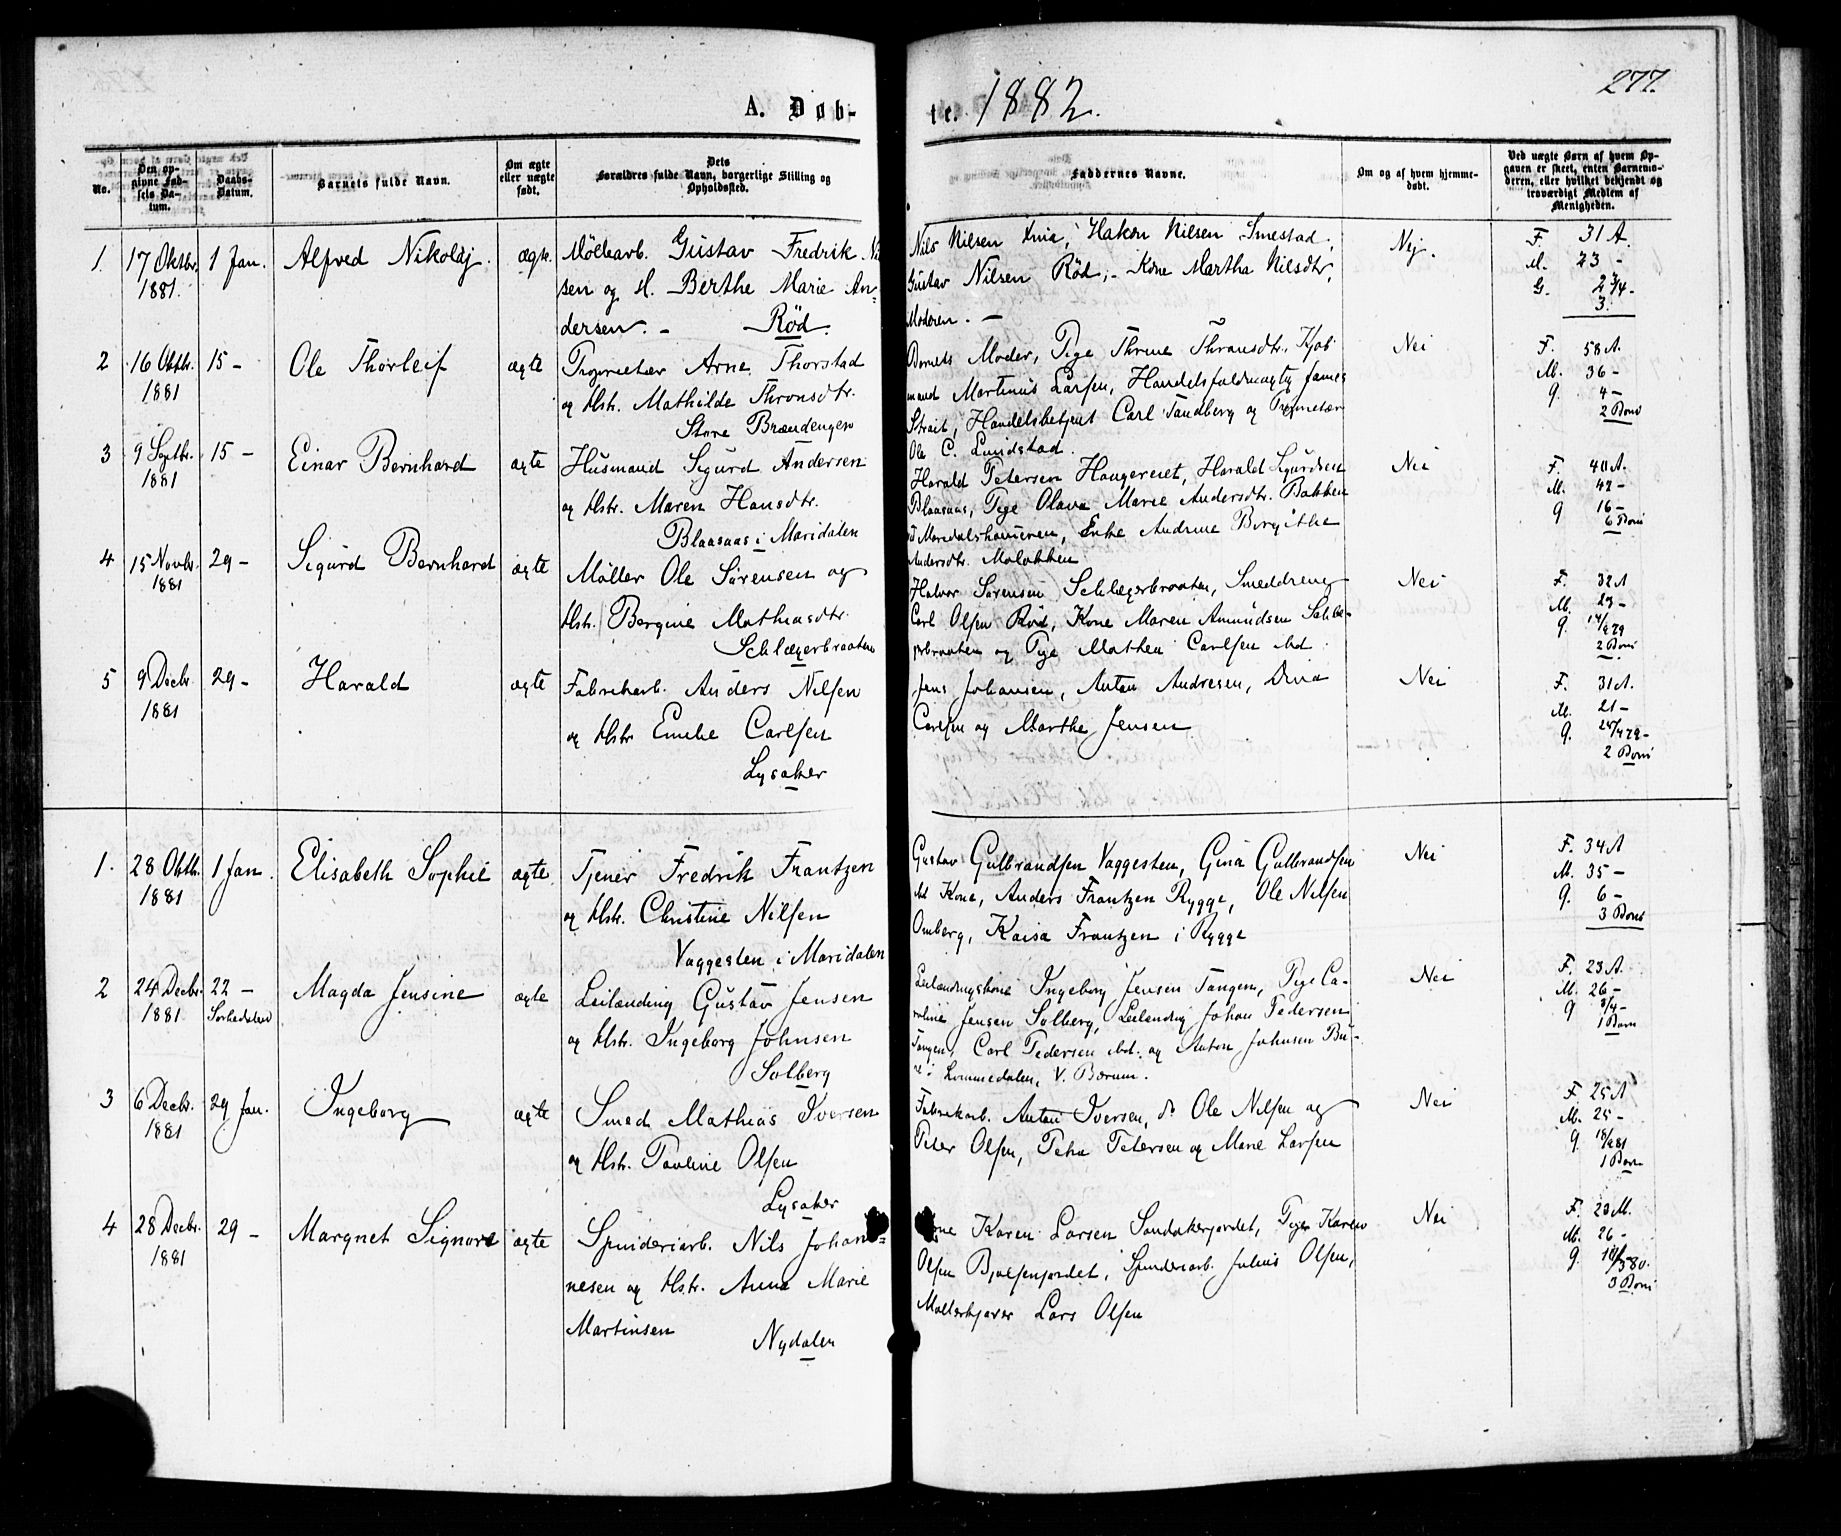 277.
A. Døb-
te. 1882.
No.
Den op-
givne Fød-
sels Da-
tum.
Daabs-
Datum.
Barnets fulde Navn.
Om ægte
eller uægte
født.
Dets
Forældres fulde Navn, borgerlige Stilling og
Opholdssted.
Faddernes Navne.
Om og af hvem hjemme-
døbt.
Ved uægte Børn af hvem Op-
gaven er skeet, enten Barnemo-
deren, eller hvilket bekjendt og
troværdigt Medlem af
Menigheden.
1. 17 Oktbr. 1 Jan. Alfred Nikolaj. ægte. Møllearb. Gustav Fredrik
1881. sen og H. Berthe Marie An-
dersen. - Rød.
Nils Nilsen Hakon Nilsen Smestad,
Gustav Nilsen Rød, - Kone Martha Nilsdtr,
Moderen. -
Nej.
F. 31 A.
M. 23 -
G. 2 3/4 -
3.
2 16 Oktbr. 15 - Ole Thorleif ægte Proprietær Arne Thorstad
1881 og Hstr. Mathilde Thronsdtr.
Store Brændengen
Barnets Moder, Pige Thrine Thronsdtr. Kjøb-
mand Martinus Larsen, Handelsfuldmægtig James
Strait, Handelsbetjent Carl Tandberg og Proprietær
Ole C. Lundstad.
Nei
F. 58 A.
M. 36 -
g. 4 -
2 Børn
3 9 Septbr. 15 - Einar Bernhard ægte Husmand Sigurd Andersen
1881 og Hstr. Maren Hansdtr.
Blaasaas i Maridalen
Harald Petersen Haugereiet, Harald Sigurdsen
Blaasaas, Pige Olava Marie Andersdtr. Bakken
i Maridalshammeren, Enke Andrine Birgithe
Andersdtr. Moløkken
Nei
F. 40 A.
M. 42 -
g 16 -
6 Børn
4 15 Novbr. 29 - Sigurd Bernhard ægte Møller Ole Sørensen og
1881 Hstr. Bergine Mathiasdtr.
Schlægerbraaten
Halvor Sørensen Schlægerbraaten, Smeddreng
Carl Olsen Rød, Kone Maren Amundsen Schlæ-
gerbraaten og Pige Mathea Carlsen ibd.
Nei
F. 32 A
M. 23 -
g.
2 Børn
5 9 Decbr. 29 - Harald ægte Fabrikarb. Anders Nilsen
1881 og Hstr Emilie Carlsen
Lysaker
Jens Johansen, Anton Andresen, Dina
Carlsen og Marthe Jensen
Nei
F. 31 A.
M. 21 -
g.
2 Børn
1. 28 Oktbr. 1 Jan. Elisabeth Sophie ægte Tjener Fredrik Frantzen
1881 og Hstr. Christine Nilsen
Vaggesten i Maridalen
Gustav Gulbrandsen Vaggesten, Gina Gulbrandsen
ibd Kone, Anders Frantzen Rygge, Ole Nilsen
Omberg, Kaisa Frantzen i Rygge
Nei
F. 34 A
M. 35 -
g. 6 -
3 Børn
2 24 Decbr. 22 - Magda Jensine ægte Leilænding Gustav Jensen
1881 Sørkedalen og Hstr. Ingeborg Johnsen
Solberg
Leilændingskone Ingeborg Jensen Tangen, Pige Ca-
roline Jensen Solberg, Leilænding Johan Pedersen
Tangen, Carl Pedersen ibd. og Anton Johnsen Bu-
re i Lommedalen, V. Bærum.
Nei
F. 23 A.
M. 26 -
g 3/4 -
1 Barn
3 6 Decbr. 29 Jan. Ingeborg ægte Smed Mathias Iversen
1881 og Hstr. Pauline Olsen
Lysaker
Fabrikarb. Anton Iversen, do Ole Nilsen og
Peter Olsen, Petra Petersen og Marie Larsen
Nei
F. 25 A
M. 25 -
g.
1 Barn
4 28 Decbr. 29 - Margnet Signora ægte Spinderiarb. Nils Johan-
1881 nesen og Hstr. Anna Marie
Martinsen Nydalen
Kone Karen Larsen Sandakerjordet, Pige Karen
Olsen Bjølsenjordet, Spinderiarb. Julius Olsen,
Møllerkjører Lars Olsen
Nei
F. 23 A.
M. 26 -
g.
3 Børn